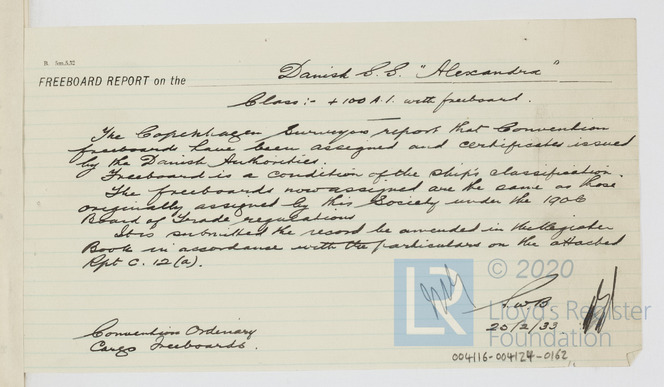 R. 5m.5.32
FREEBOARD REPORT on the Danish S.S. "Alexandra"
Class:- +100 A.1. with freeboard.
The Copenhagen Surveyors report that Convention
freeboards have been assigned and certificates issued
by the Danish Authorities.
Freeboard is a condition of the ship's classification.
The freeboards now assigned are the same as those
originally assigned by this Society under the 1906
Board of Trade regulations
It is submitted the record be amended in the Register
Book in accordance with the particulars on the attached
Rpt C. 12(a).
LR
© 2020
Lloyd's Register
Foundation
20/2/33.
Convention Ordinary
Cargo Freeboards.
004116-004124-0162